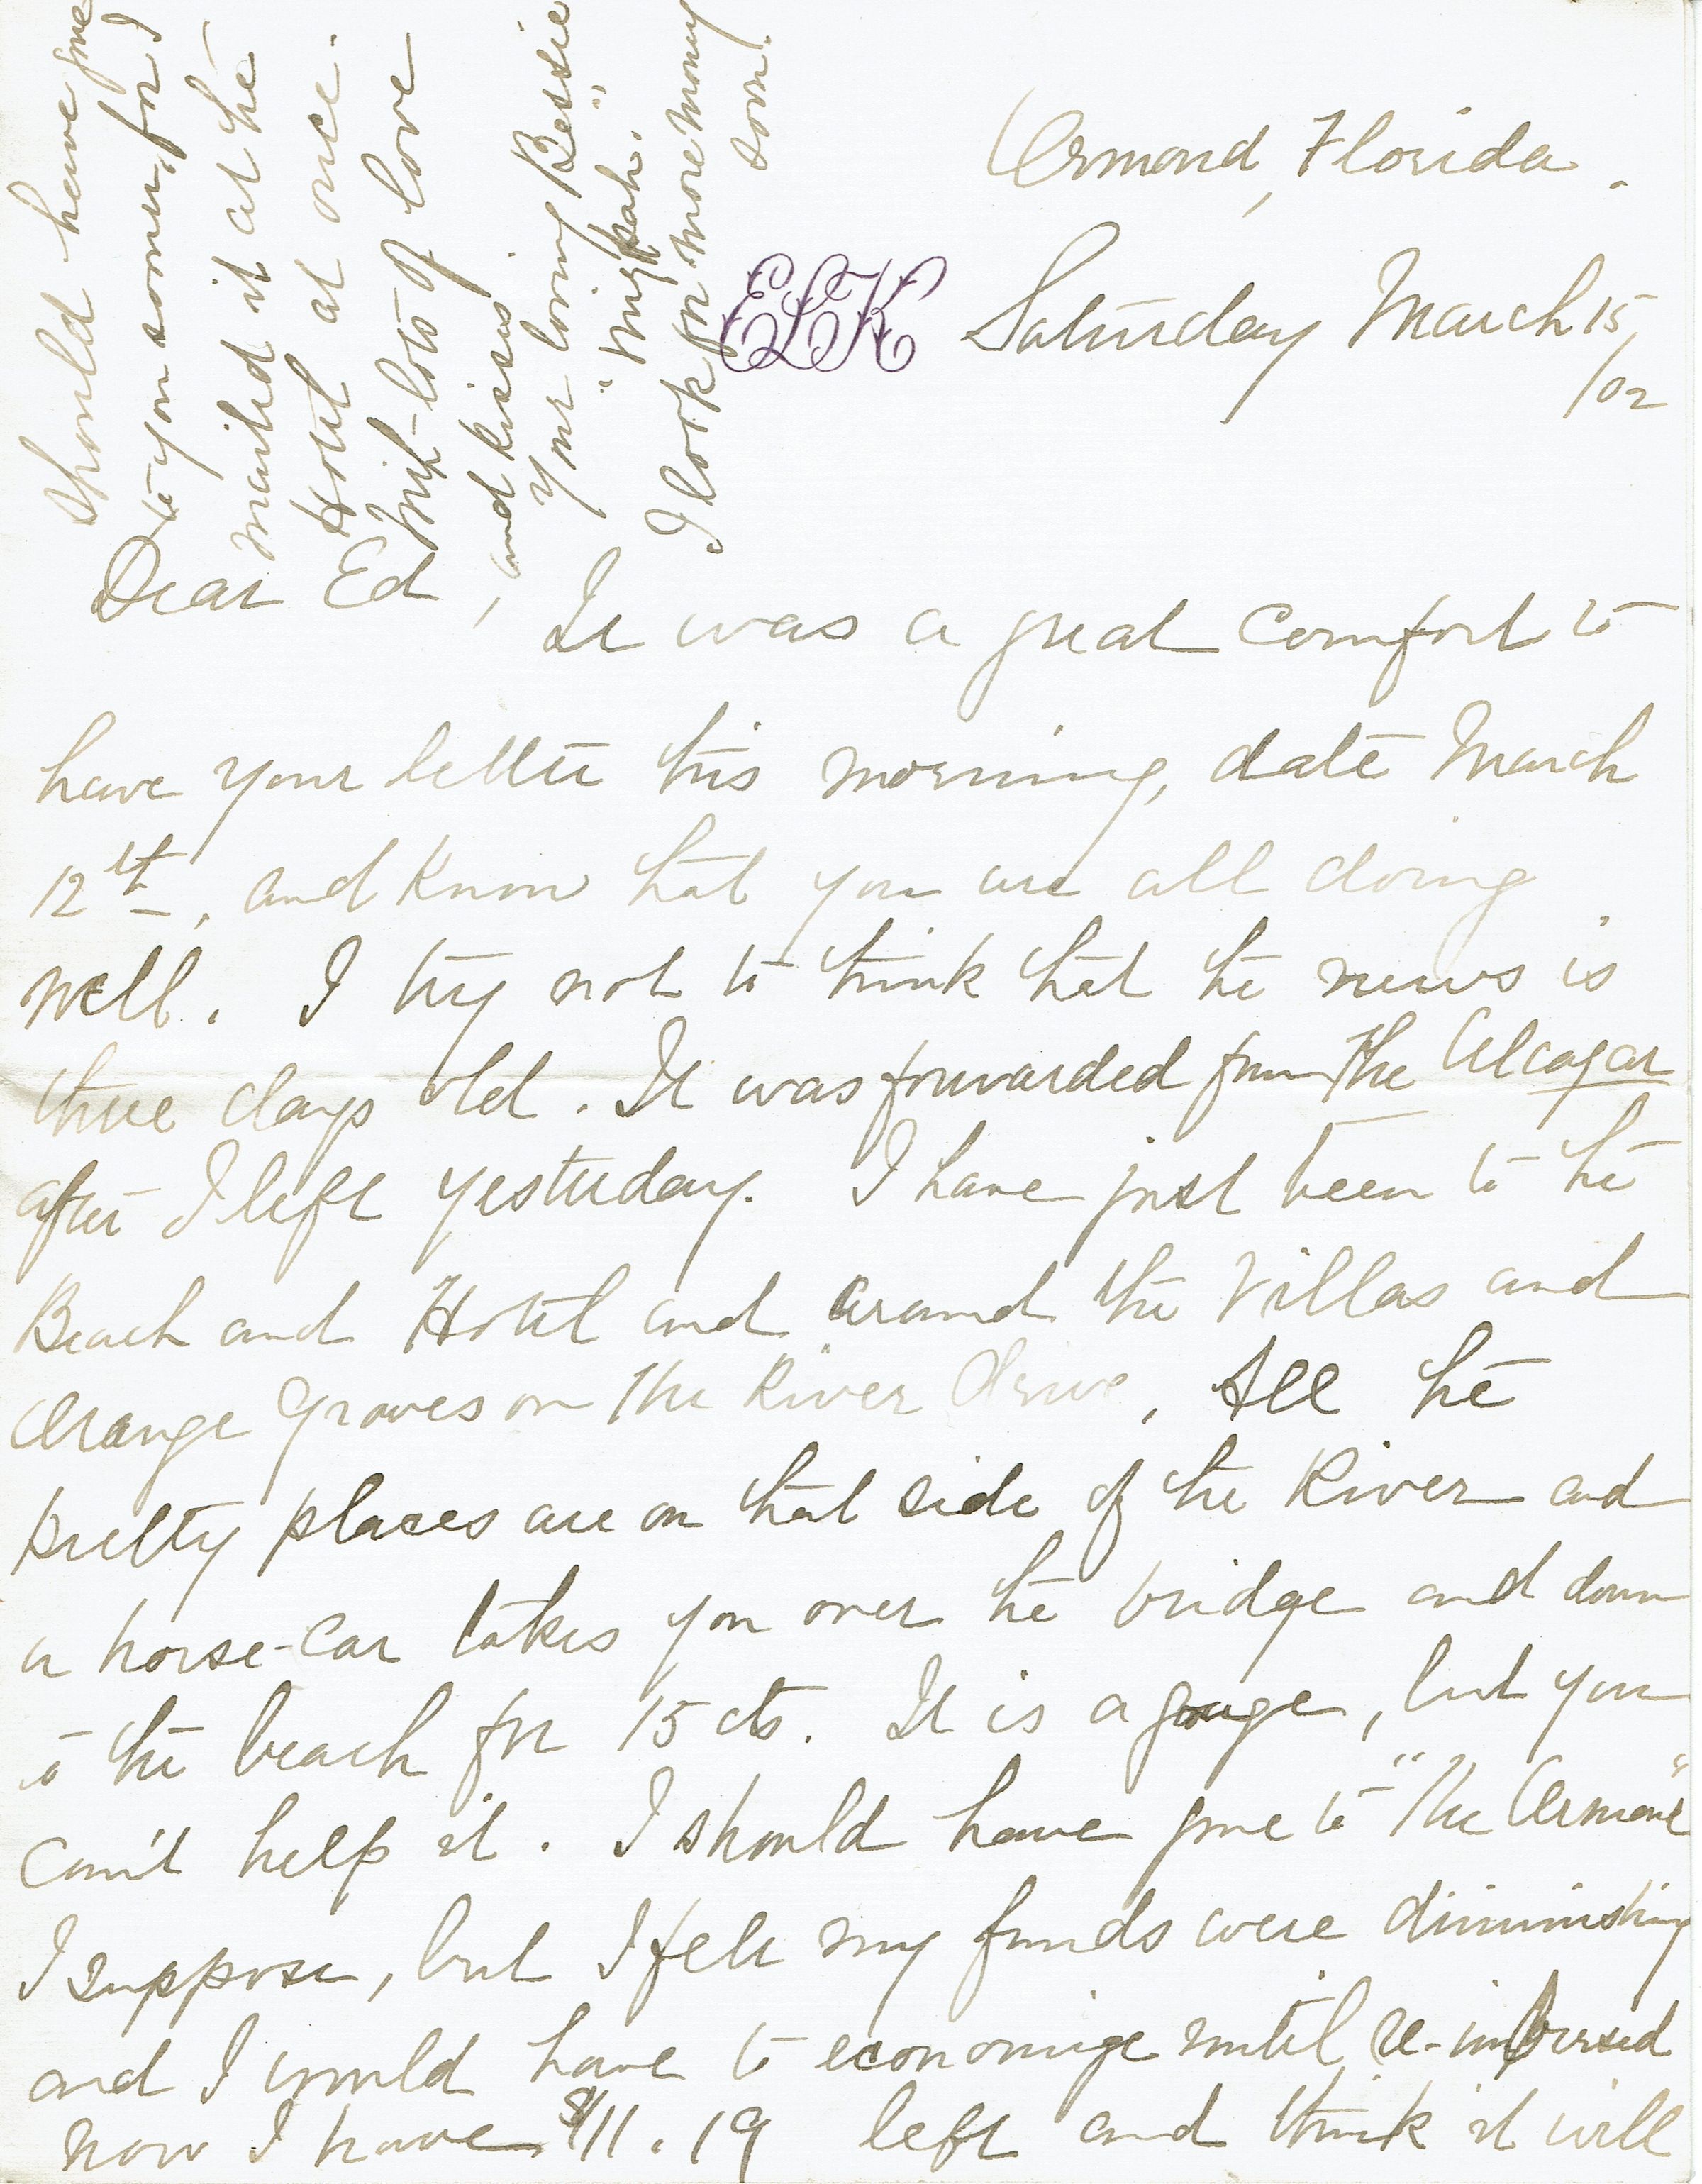 Ormond, Florida.
ELK
Saturday March 15
/02
Dear Ed,
It was a great comfort to
have your letter this morning, date March
12th, and know that you are all doing
well. I try not to think that the news is
three days old. It was forwarded from The Alcazar
after I left yesterday. I have just been to the
Beach and Hotel and around the Villas and
Orange groves on the River drive, All the
pretty places are on that side of the River and
a horse-car takes you over the bridge and down
to the beach for 15 cts. It is a gouge, but you
can't help it. I should have gone to "The Ormond"
I suppose, but I felt my funds were diminishing
and I would have to economize until re-imbursed
now I have $11.19 left and think it will
should have gone
to you sooner, for I
mailed it at the
Hotel at once.
With lots of love
and kisses
your loving Bessie
"Mizpah."
I look for more money
soon.